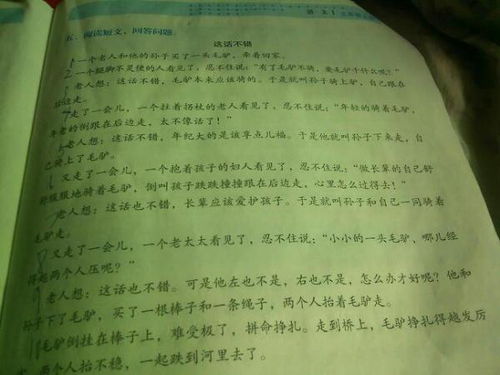 语文
五、阅读短文，回答问题。
这话不错
1 一个老人和他的孙子买了一头毛驴，牵着回家。
2 一个腿脚不灵便的人看见了，忍不住说：“有了毛驴不骑，要毛驴干什么呢？”
老人想：这话不错，毛驴本来应该骑的。于是就叫孙子骑上驴，自己跟在
后边走。
走了一会儿，一个拄着拐杖的老人看见了，忍不住说：“年轻的骑着毛驴，
年老的倒跟在后边走，太不像话了！”
老人想：这话不错，年纪大的是该享点儿福。于是他就叫孙子下来走，自
己骑上了毛驴。
又走了一会儿，一个抱着孩子的妇人看见了，忍不住说：“做长辈的自己舒
舒服服地骑着毛驴，倒叫孩子跌跌撞撞跟在后边走，心里怎么过得去！”
老人想：这话也不错，长辈应该爱护孩子。于是就叫孙子和自己一同骑着
毛驴走。
又走了一会儿，一个老太太看见了，忍不住说：“小小的一头毛驴，哪儿经
得起两个人压呢？”
老人想：这话也不错。可是他左也不是，右也不是，怎么办才好呢？他和
孙子下了毛驴，买了一根棒子和一条绳子，两个人抬着毛驴走。
毛驴倒挂在棒子上，难受极了，拼命挣扎。走到桥上，毛驴挣扎得越发厉
两个人抬不稳，一起跌到河里去了。